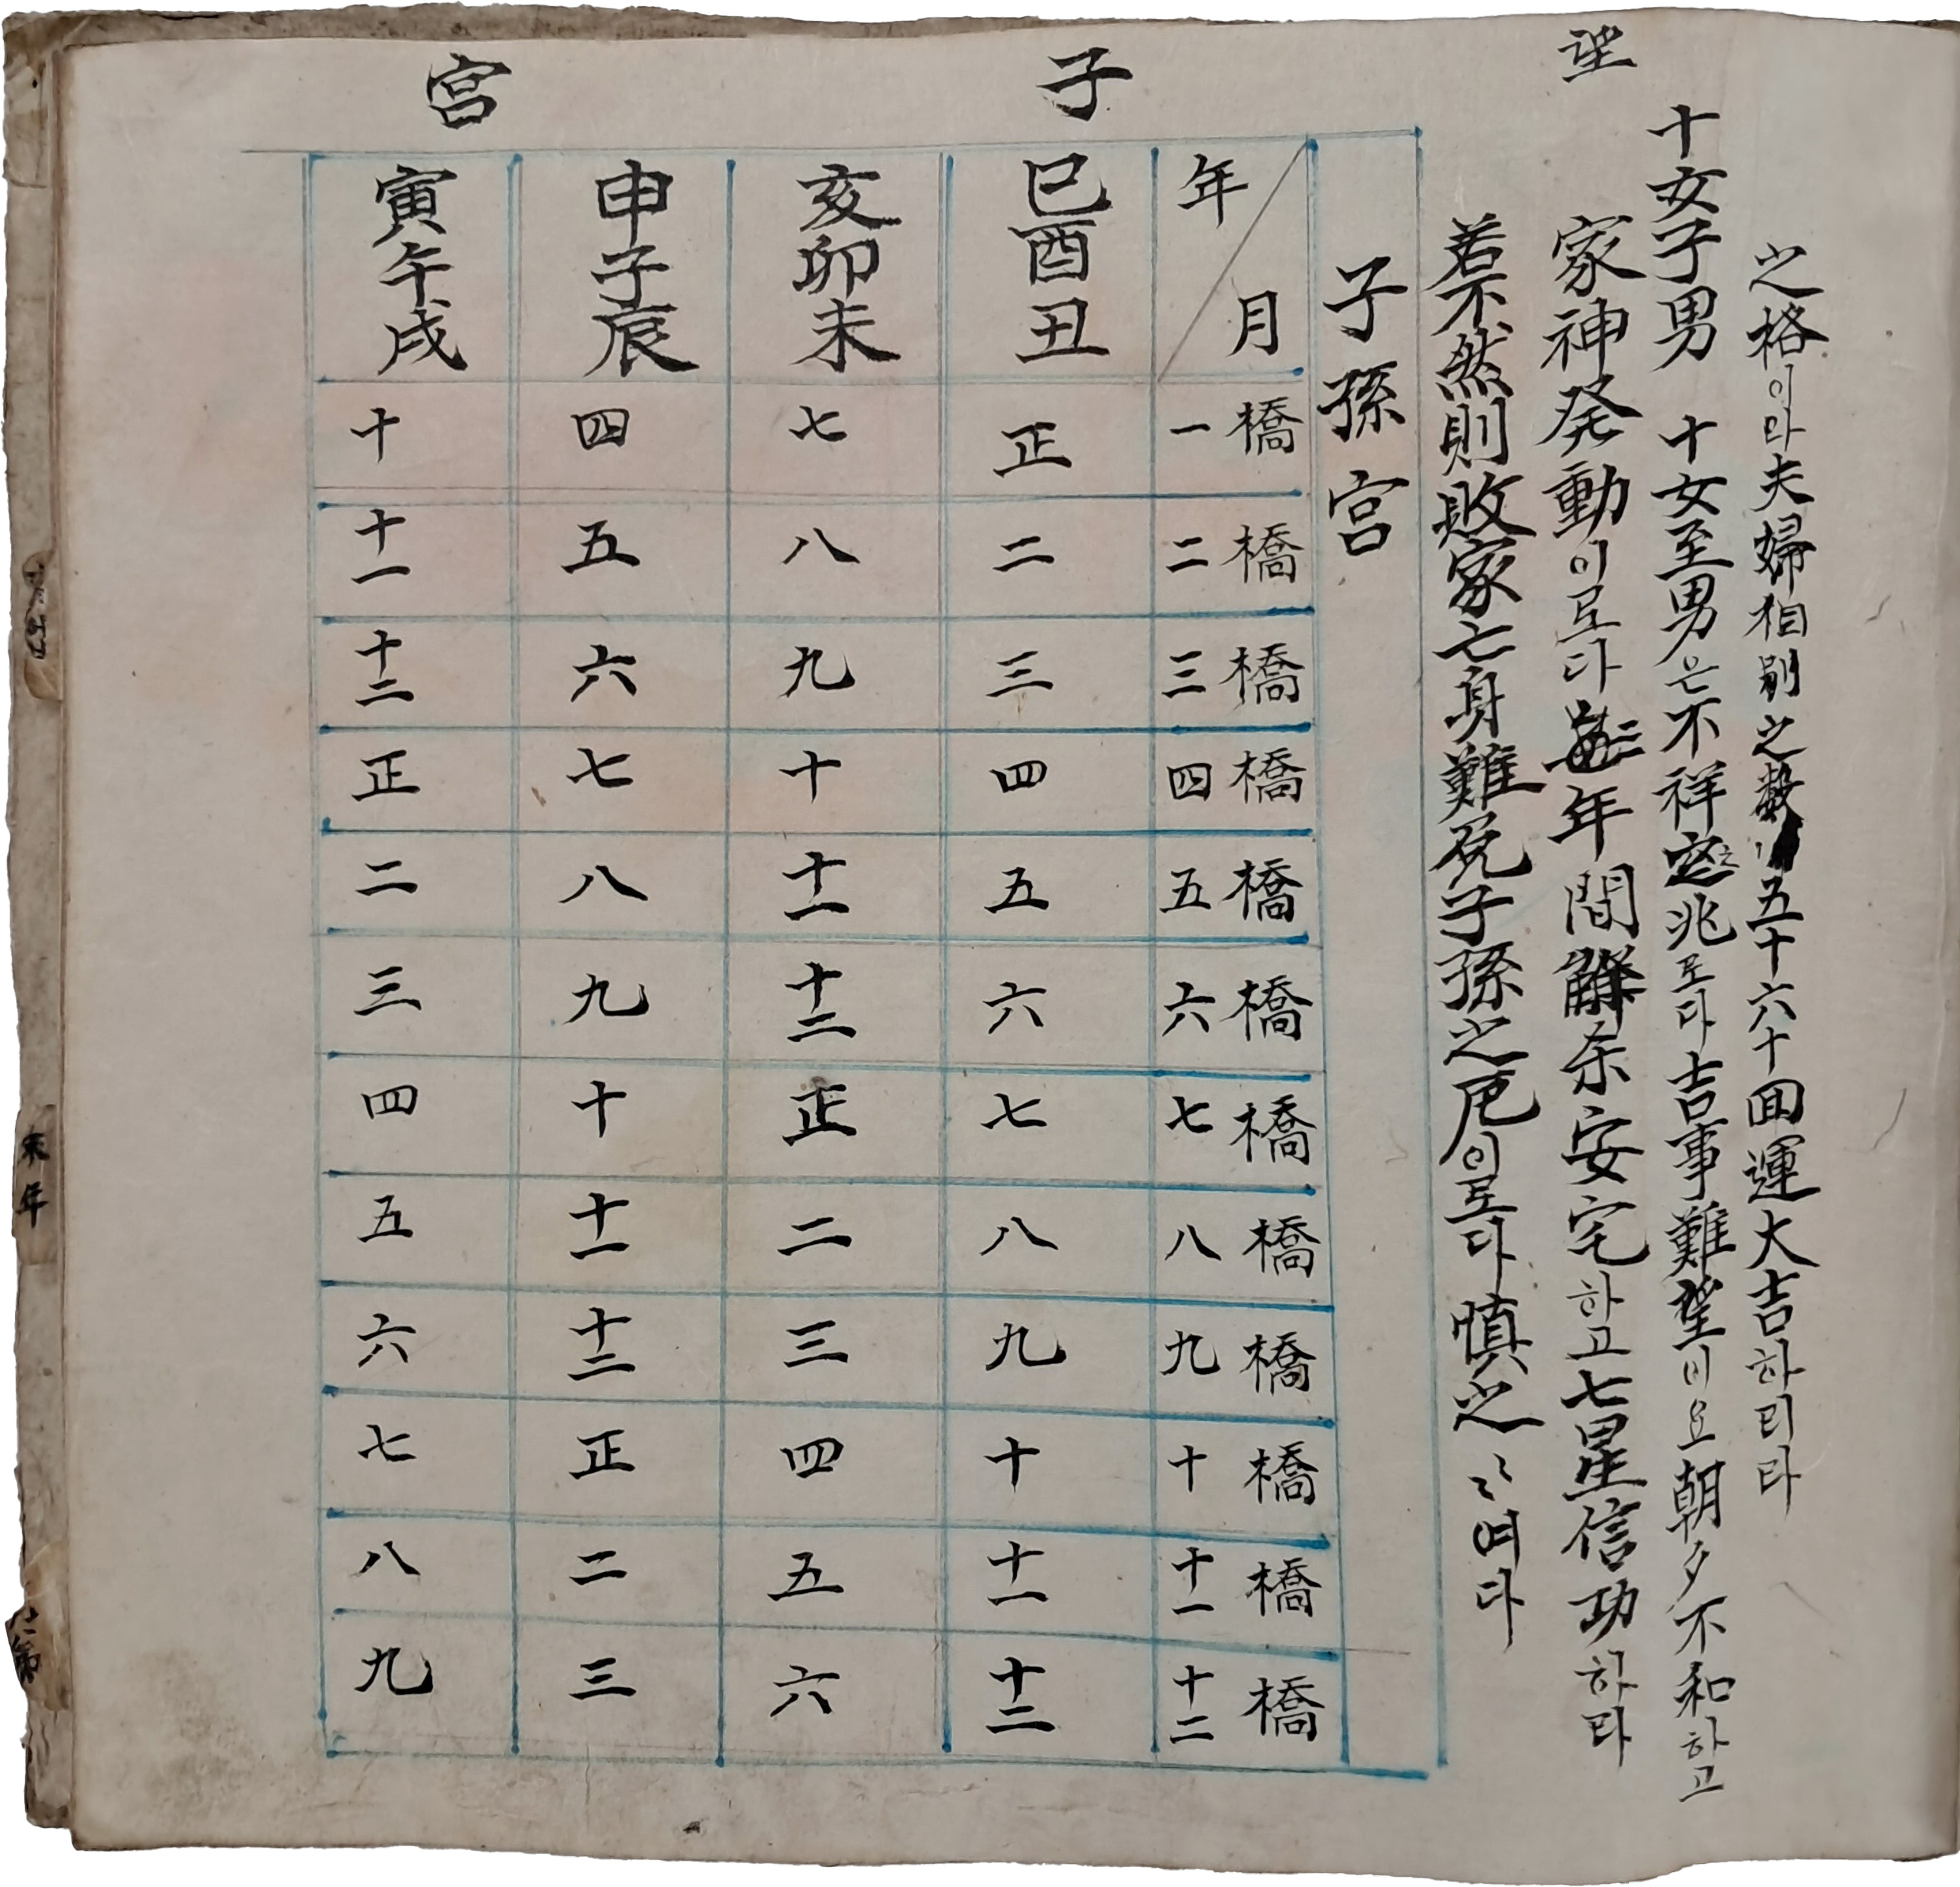 望
之格이라夫婦相別之數 五十六十回運大吉하리라
十女子男 十女至男은不祥之兆로다吉事難望이요朝夕不和하고
家神発動이로다 年間解杀安宅하고七星信功하라
若不然則敗家亡身難免子孫之厄이로다 慎之〻여다
子 宮
子孫宮
年 月
橋 一
橋 二
橋 三
橋 四
橋 五
橋 六
橋 七
橋 八
橋 九
橋 十
橋 十一
橋 十二
巳酉丑 正 二 三 四 五 六 七 八 九 十 十一 十二
亥卯未 七 八 九 十 十一 十二 正 二 三 四 五 六
申子辰 四 五 六 七 八 九 十 十一 十二 正 二 三
寅午戌 十 十一 十二 正 二 三 四 五 六 七 八 九
末年